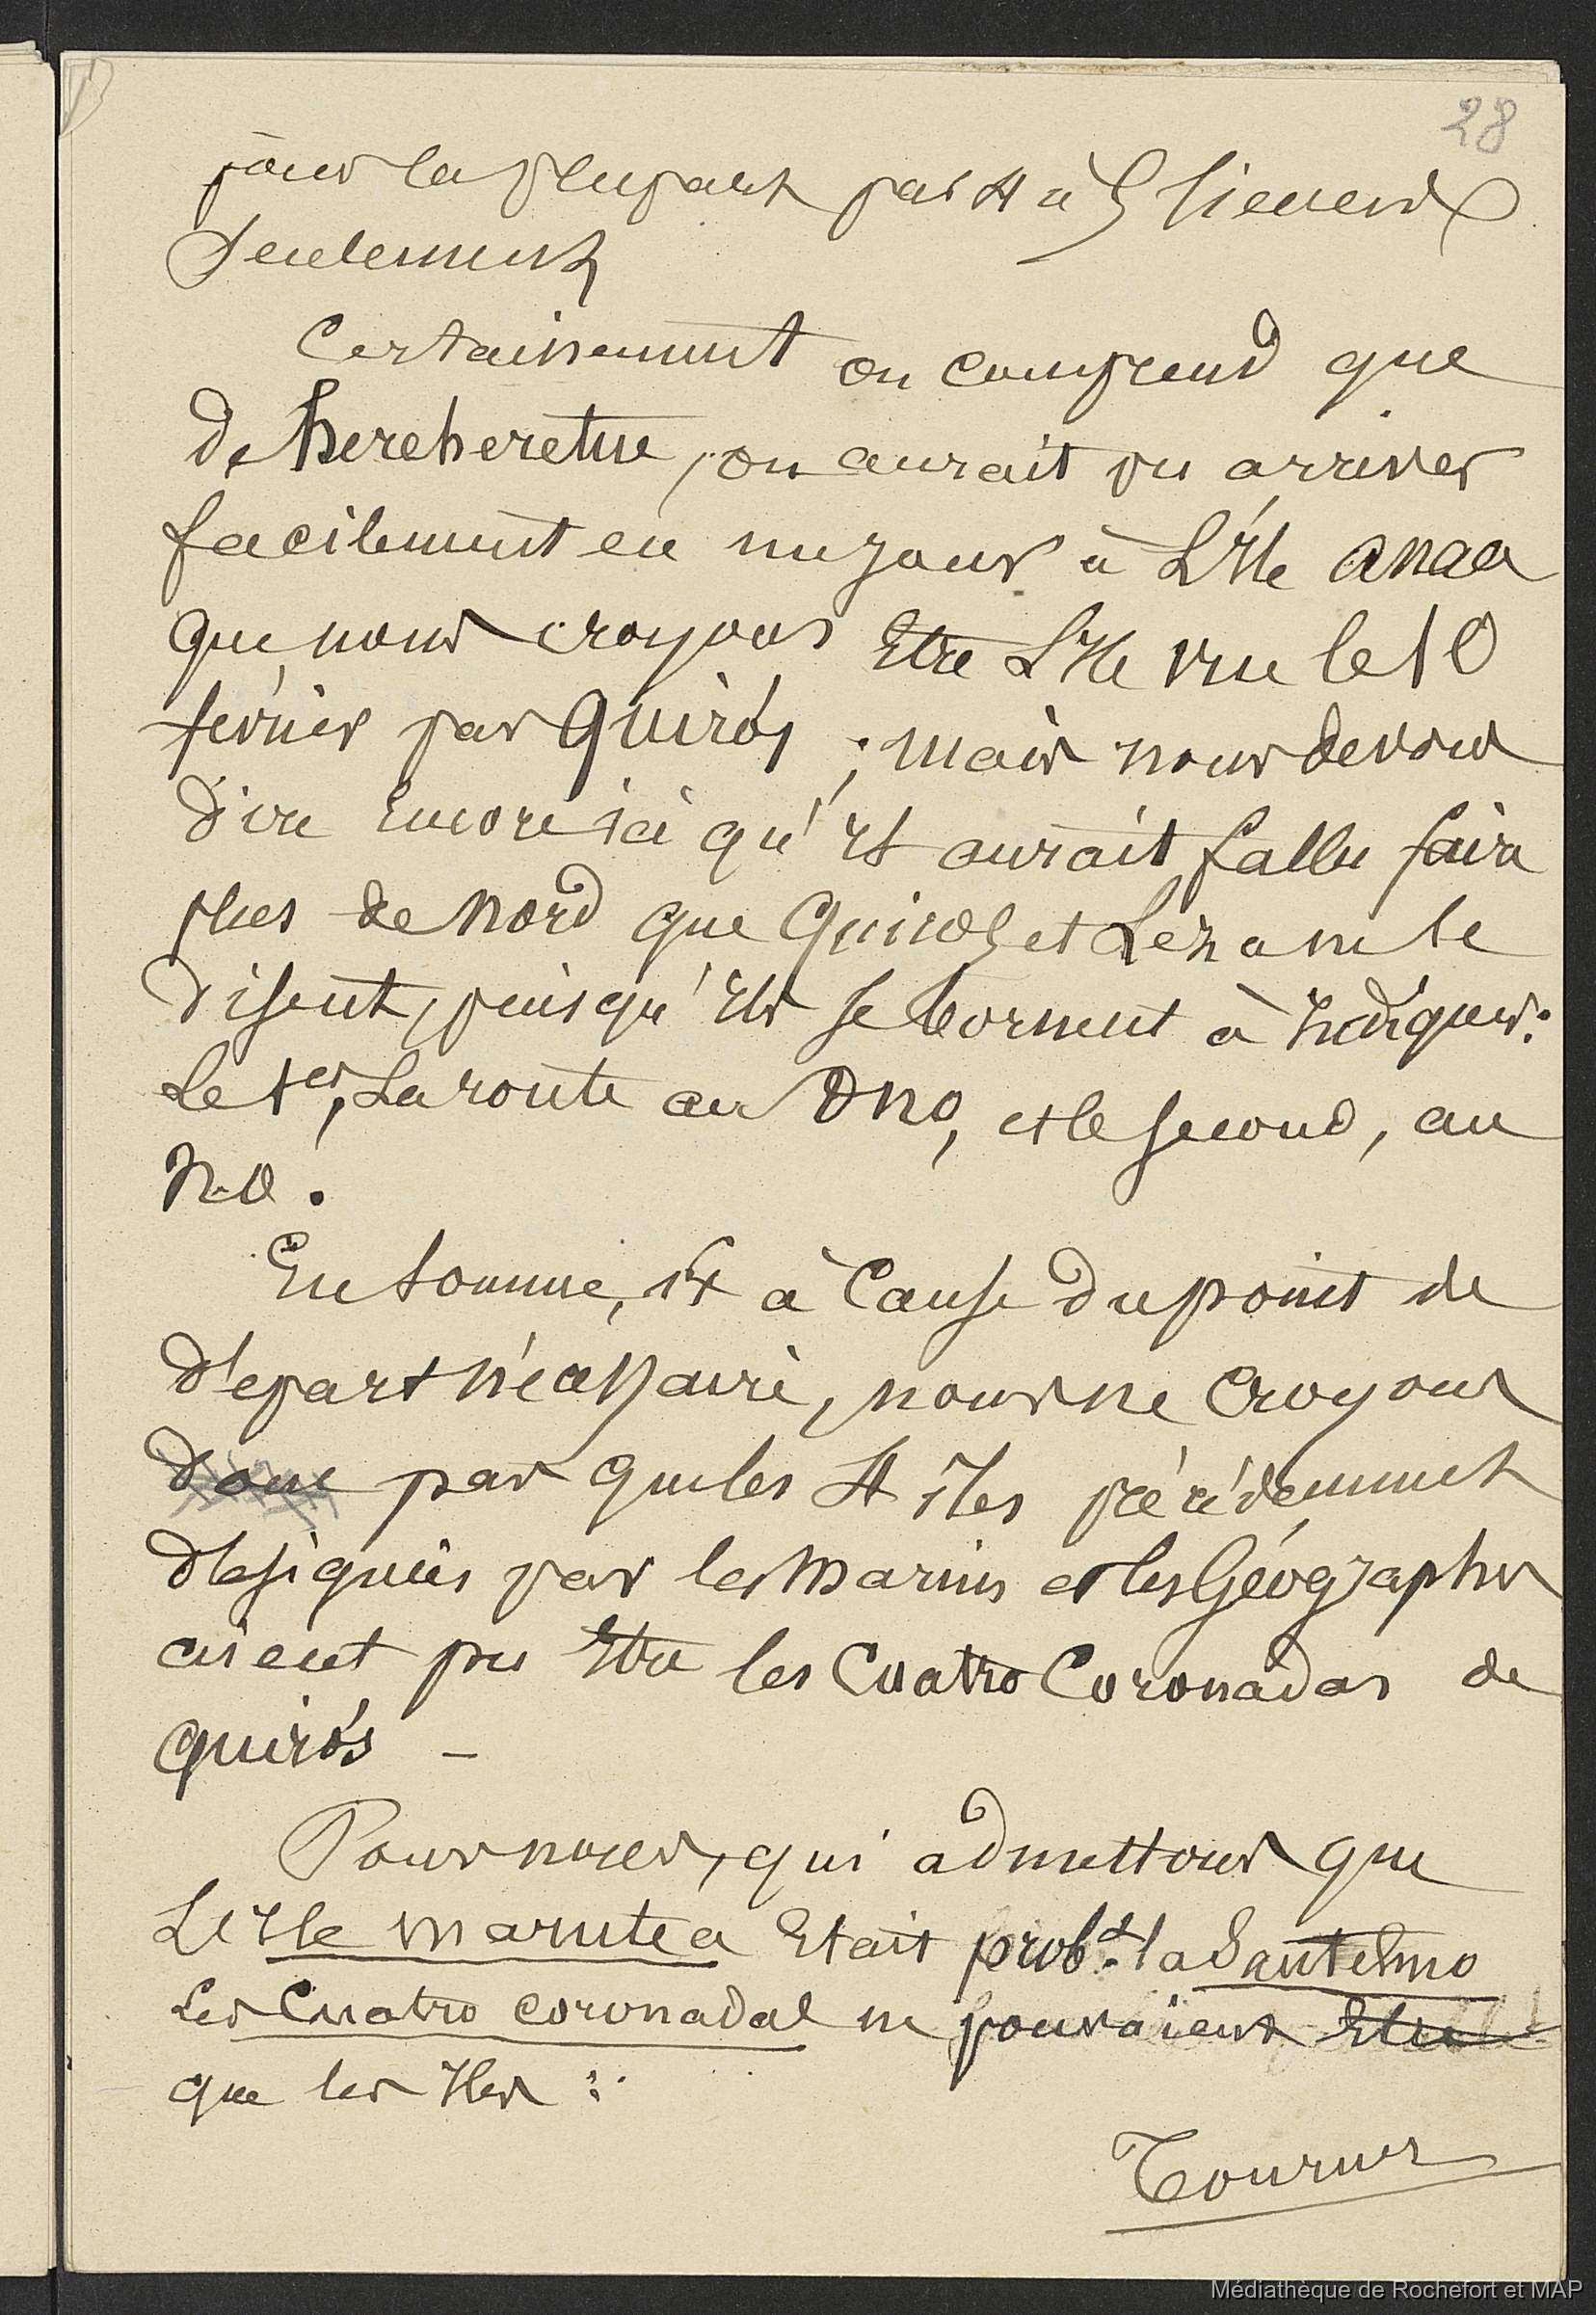 28
pour la plupart par 4 à 5 lieues
seulement
Certainement on comprend que
de hereheretue, on aurait pu arriver
facilement en un jour à L'Ile anaa
que nous croyons Etre L'Ile vue le 10
février par Quirós ; mais nous devons
dire encore ici qu'il aurait fallu faire
plus de nord que Quiros et Leza ne le
disent, puisqu'ils se bornent à Indiquer:
Le 1er, La route au ONO, et le second, au
NO.
En somme, et à Cause du point de
départ nécessaire, nous ne Croyons
donc pas que les 4 îles précédemment
désignées par les Marins et les Géographes
aient pu Etre les Cuatro Coronadas de
Quirós –
Pour nous, qui admettons que
L'Ile marutea Etait probt. la Santelmo
Les Cuatro coronadas ne pouvaient Etre
que les Iles :
Tournez
Médiathèque de Rochefort et MAP